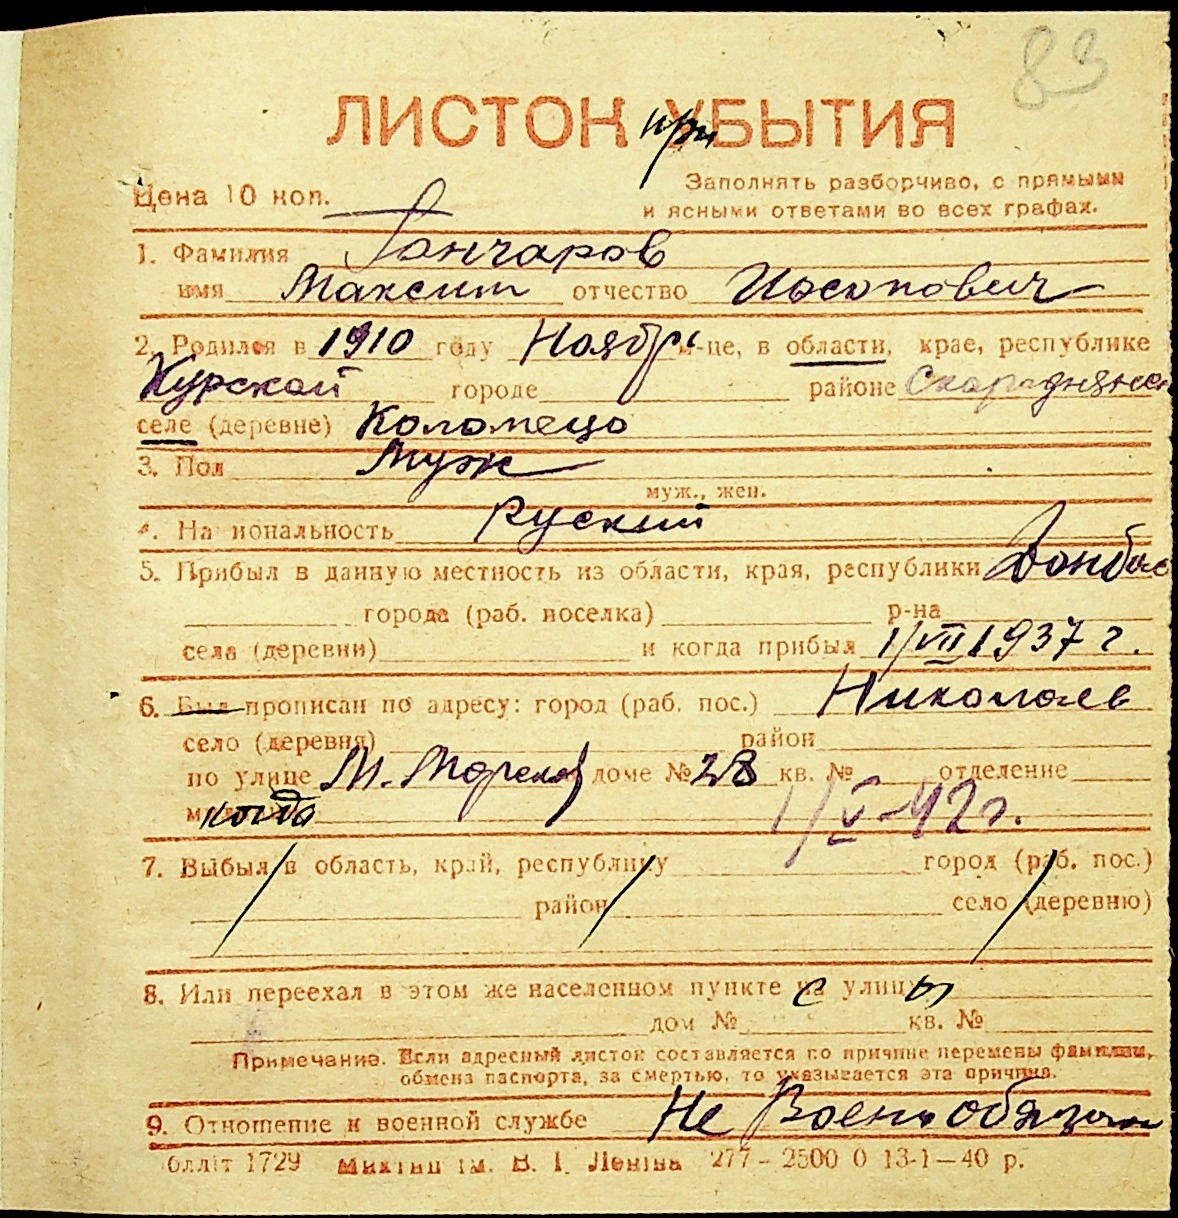 83
ЛИСТОК при УБЫТИЯ
Цена 10 коп. Заполнять разборчиво, с прямыми
и ясными ответами во всех графах.
1. Фамилия Гончаров
имя Максим отчество Иосопович
2. Родился в 1910 году Ноябрь м-це, в области, крае, республике
Курской городе районе
селе (деревне) Коломецо
3. Пол Муж
муж., жен.
4. На иональность Руский
5. Прибыл в данную местность из области, края, республики Донбас
города (раб. поселка) р-на
села (деревни) и когда прибыл 1/VII 1937 г.
6. Был прописан по адресу: город (раб. пос.) Николаев
село (деревня) район
по улице М. Морская доме № 28 кв. № отделение
когда 1/V-42г.
7. Выбыл в область, край, республику город (раб. пос.)
район село (деревню)
8. Или переехал в этом же населенном пункте с улицы
дом № кв. №
Примечание. Если адресный листок составляется по причине перемены фамилии,
обмена паспорта, за смертью, то указывается эта причина.
9. Отношение к военной службе Не Военобязаный
блліт 1729 ім. В. І. Леніна 277 – 2500 0 13-1—40 р.